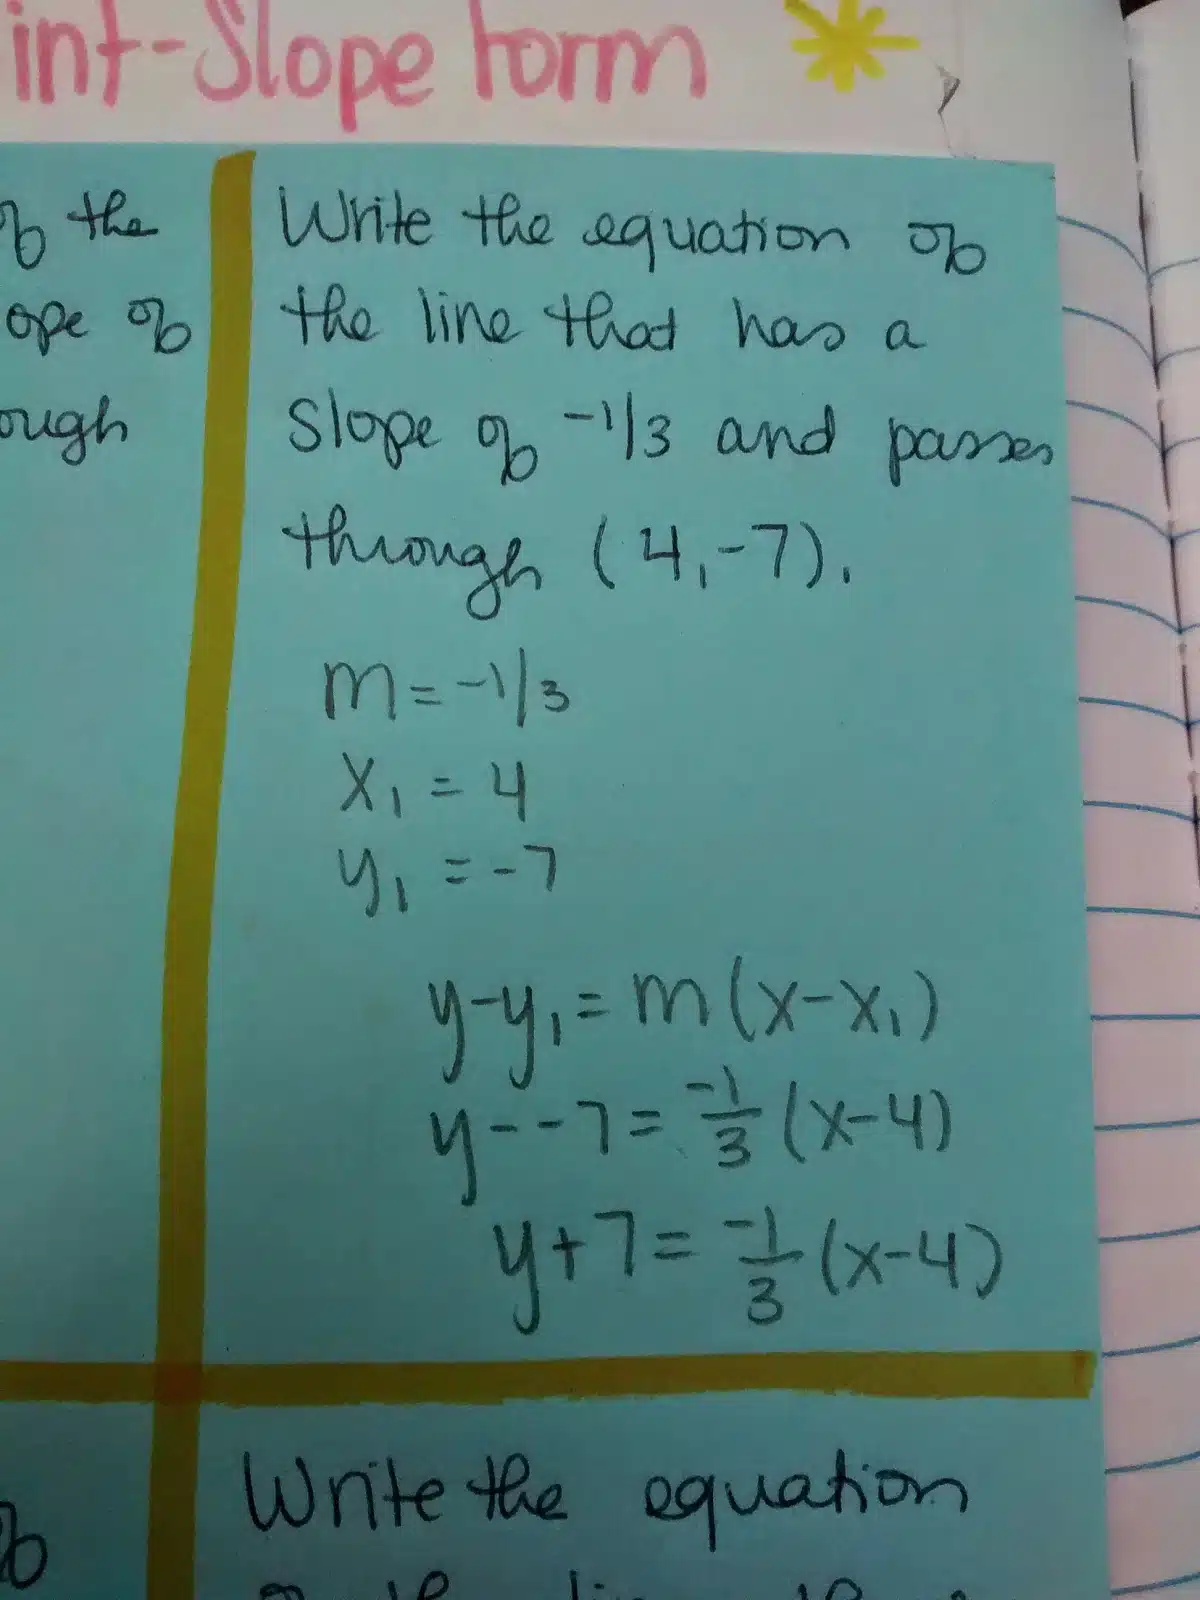 int-Slope form
of the
ope of
ough
Write the equation of
the line that has a
slope of -1/3 and passes
through (4,-7).
m = -1/3
x₁ = 4
y₁ = -7
y-y₁ = m(x-x₁)
y--7 = -1/3 (x-4)
y+7 = -1/3 (x-4)
Write the equation